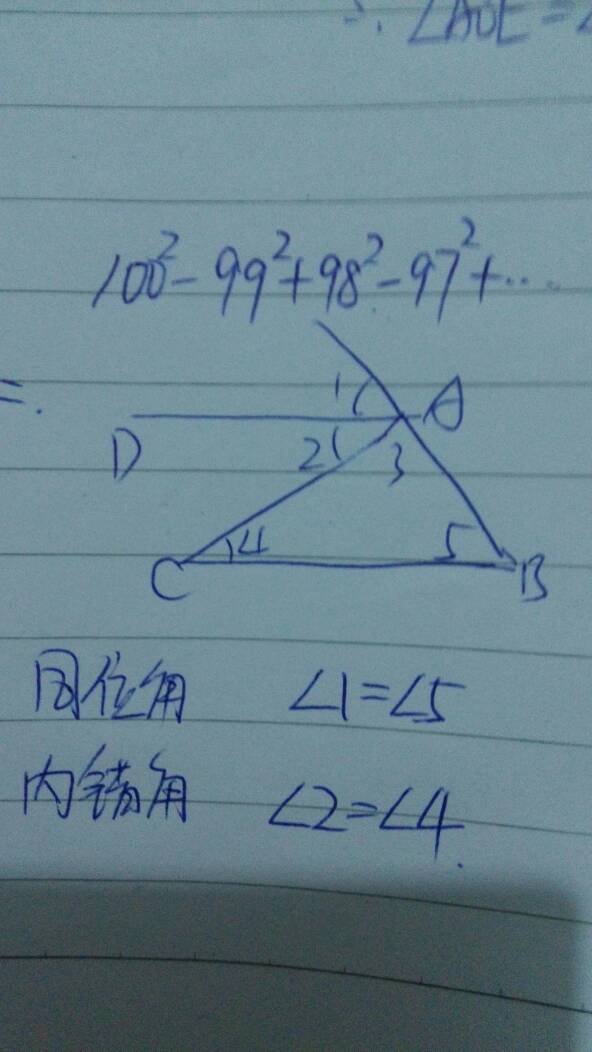 ∴ ∠AOE=∠
100²-99²+98²-97²+...
=.
1 A
D 2 3
4 5
C B
同位角 ∠1=∠5
内错角 ∠2=∠4.